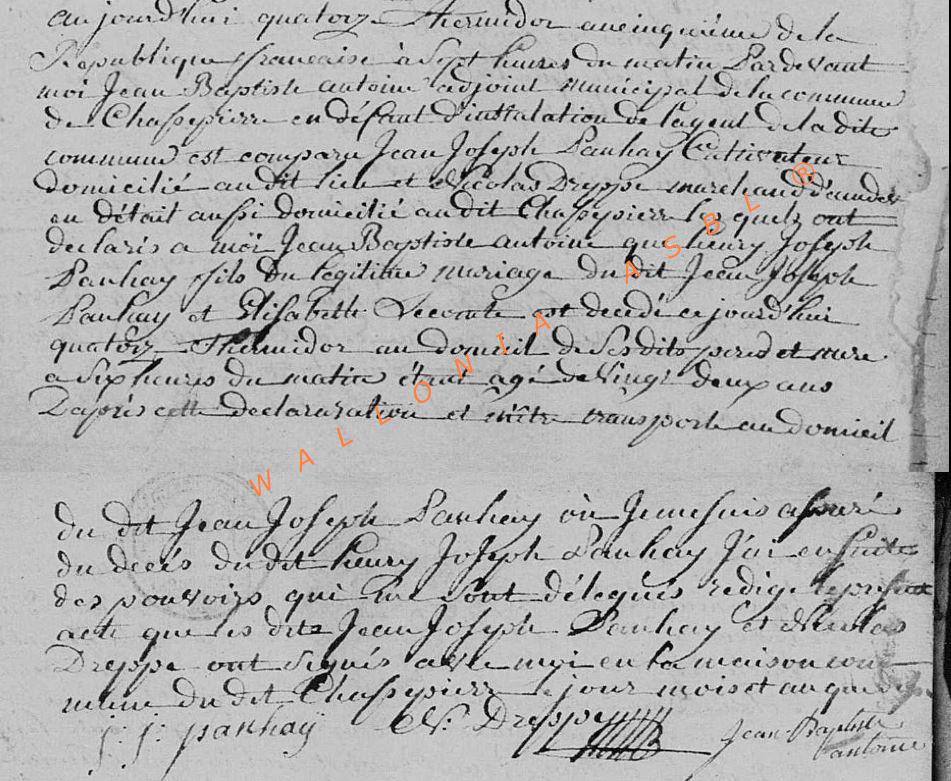 aujourd'hui quatorz Thermidor an cinquième de la
République française à sept heures du matin Pardevant
moi Jean Baptiste antoine adjoint municipal de la commune
de Chassepierre en défaut d'instalation de l'agent de la dite
commune est comparu Jean Joseph Panhay Cultivateur
domicilié au dit lieu et Nicolas Dreppe marchand
en détait aussi domicilié au dit Chassepierre les quels ont
declarés a moi Jean Baptiste antoine que henry Joseph
Panhay fils du légitime mariage du dit Jean Joseph
Panhay et Elisabeth Lecomte est decédé cejourd'hui
quatorz Thermidor au domicil de ses dits pere et mere
a six heures du matin étant agé de vingt deux ans
D'après cette declararation et m'être transporte au domicil
du dit Jean Joseph Panhay où Je me suis assuré
du decés du dit henry Joseph Panhay J'ai en suite
des pouvoirs qui me sont délegués redigé le present
acte que les dits Jean Joseph Panhay et Nicolas
Dreppe ont signés avec moi en la maison com-
mune du dit Chassepierre jour mois et an que
j: j: panhay N: Dreppe Jean Baptiste
antoine
WALLONIA ASBL ®